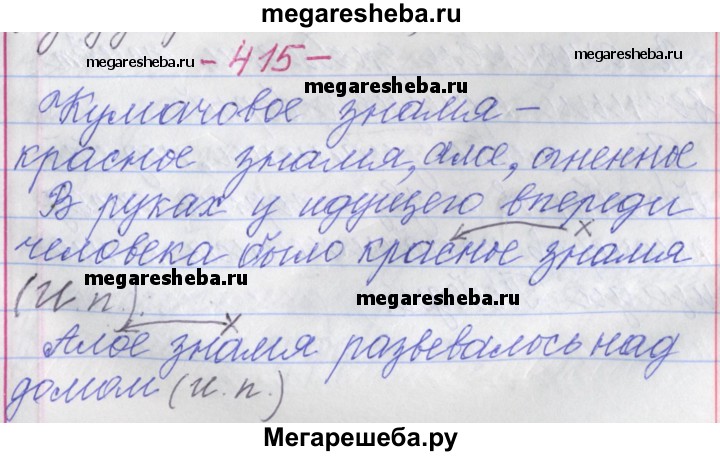 megaresheba.ru
- 415 -
megaresheba.ru
megaresheba.ru
Кумачовое знамя -
красное знамя, алое, огненное
В руках у идущего впереди
человека было красное знамя
megaresheba.ru
(И.п.).
megaresheba.ru
Алое знамя развевалось над
домом (и.п.)
Мегарешеба.ру